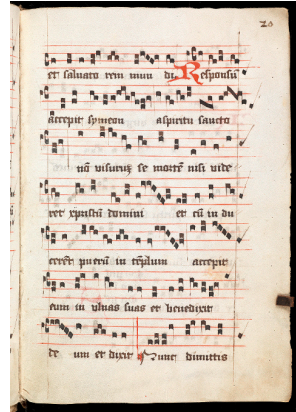 20
et saluato rem mun di Responsū
accepit symeon a spiritu sancto
nō visurū se mortē nisi vide
ret xpistū domini et cū in du
cerēt puerū in templum accepit
eum in vlnas suas et benedixit
de um et dixit Nunc dimittis